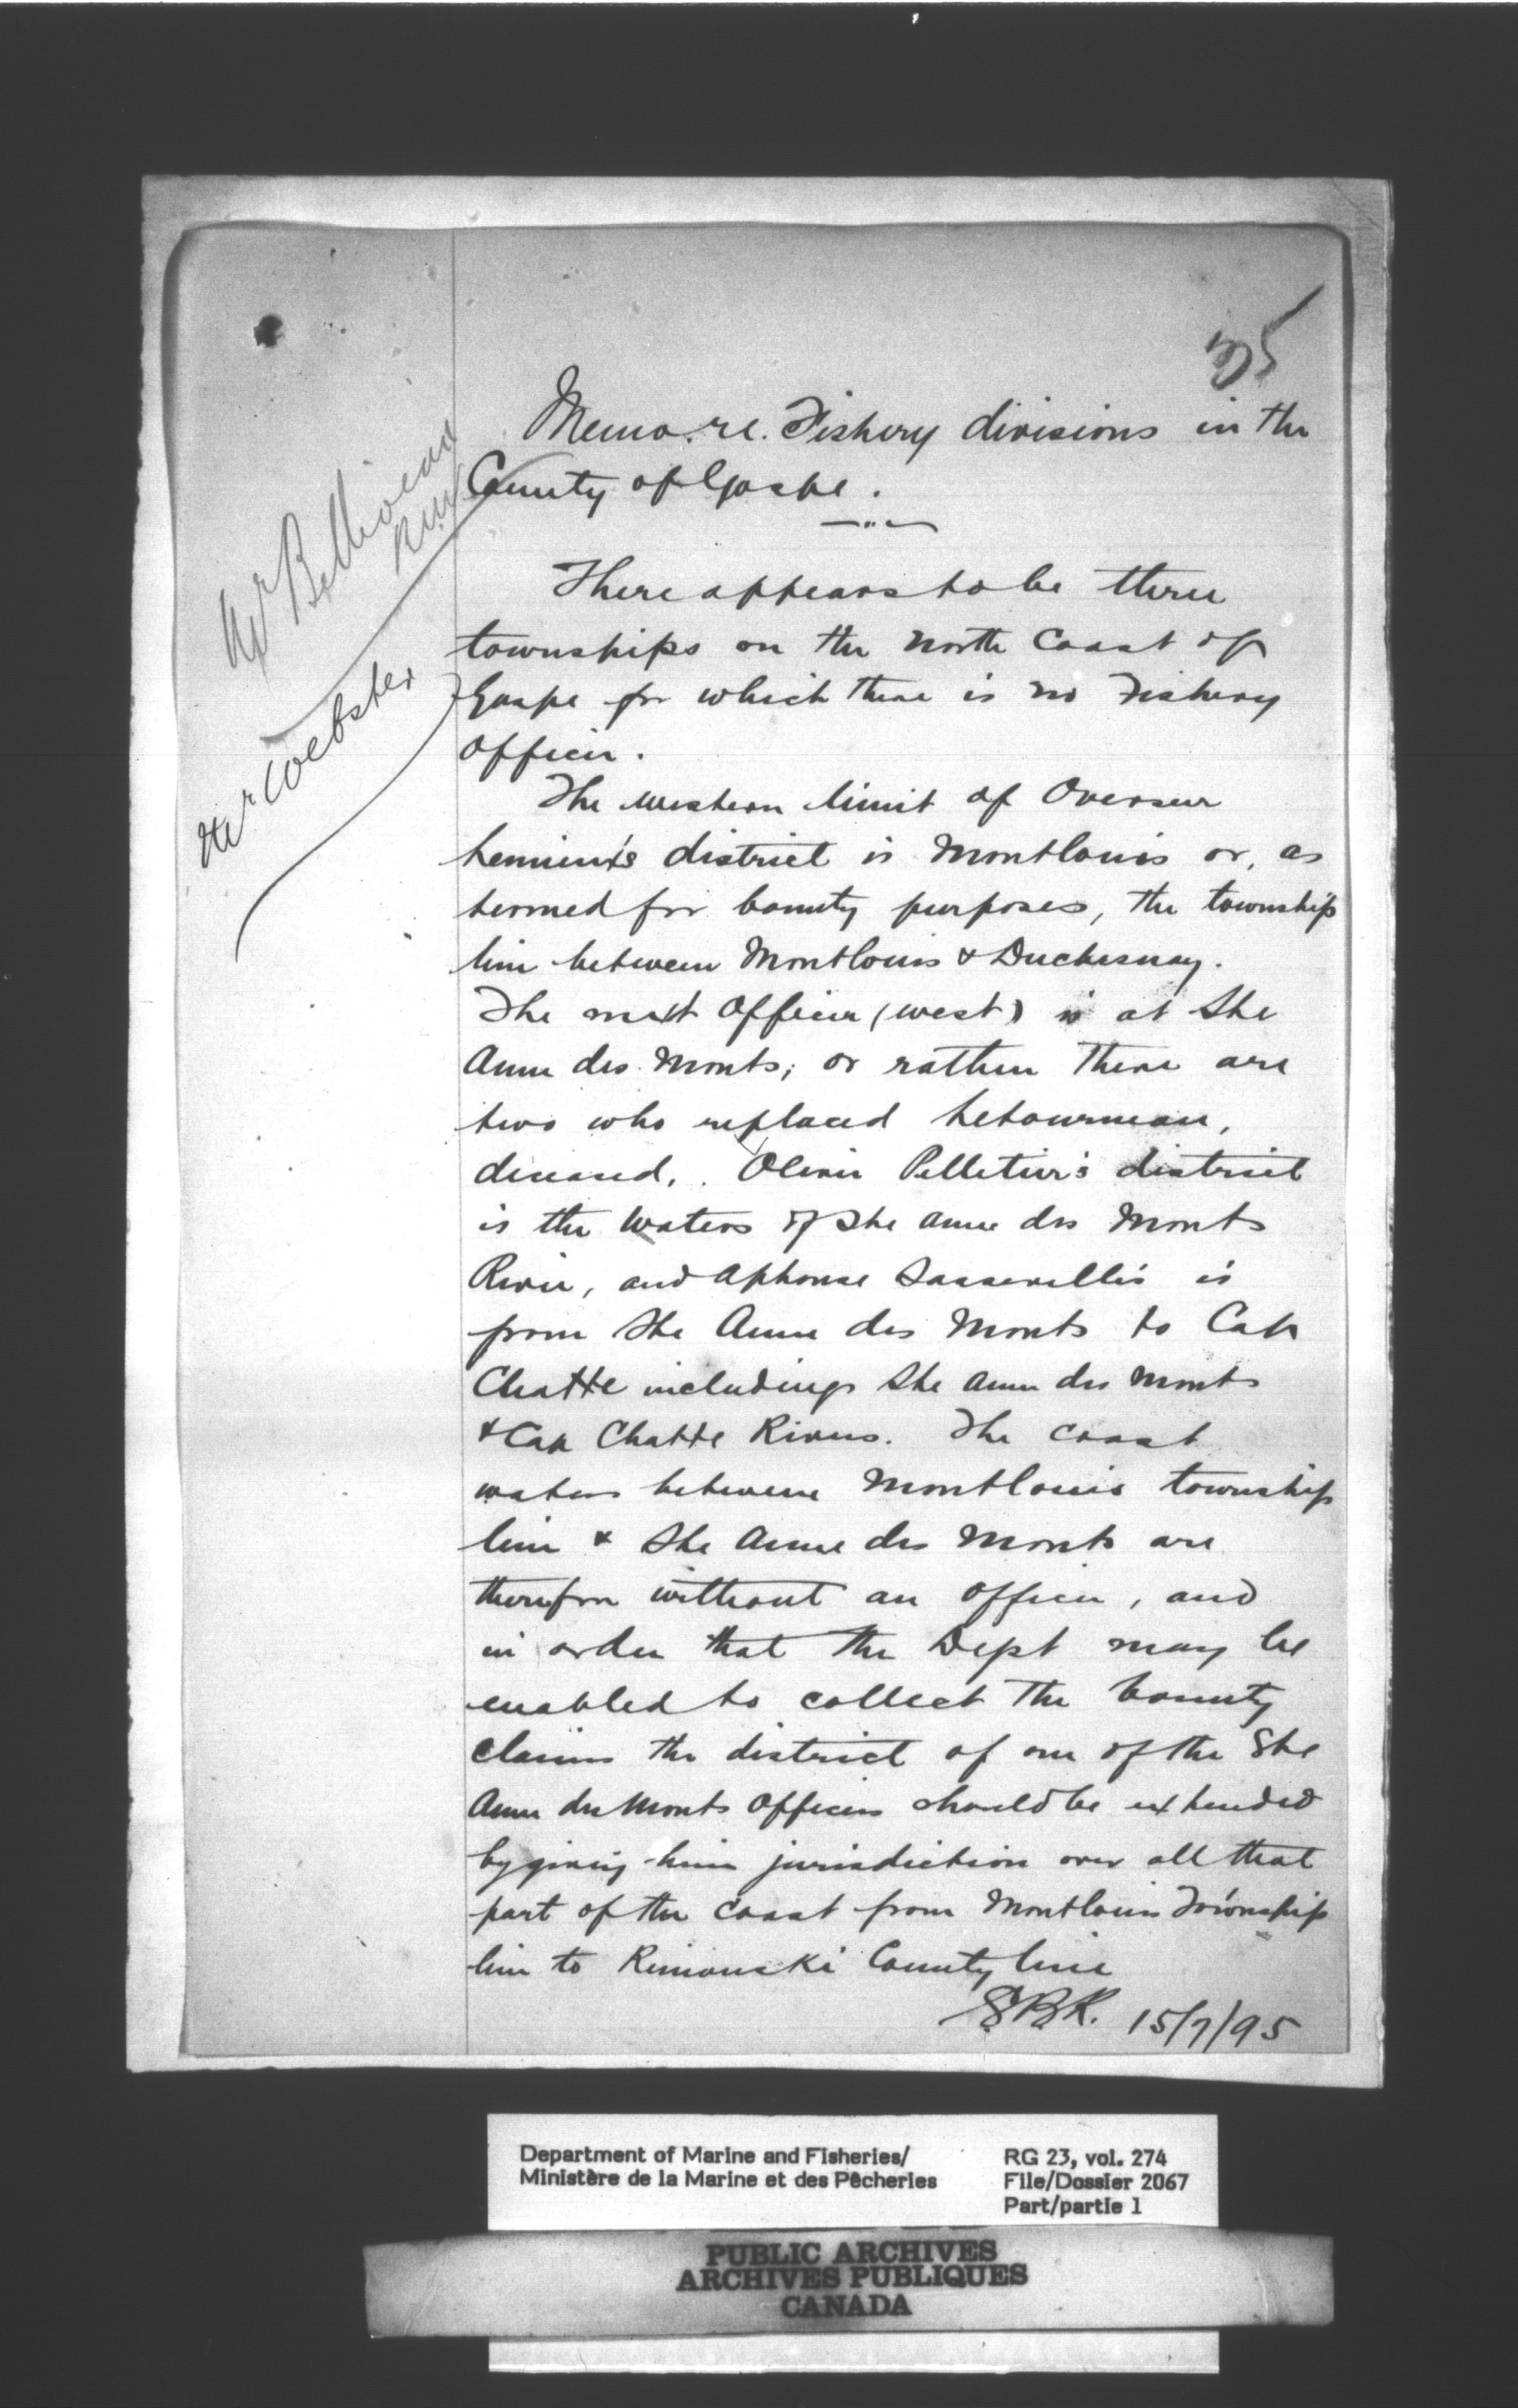 35
Memo. re. Fishery divisions in the
County of Gaspe.
Mr
Mr Webster
There appears to be three
townships on the North Coast of
Gaspe for which there is no Fishery
Officer.
The western limit of Overseer
district is Montlouis or, as
termed for bounty purposes, the township
line between Montlouis & Duchesnay.
The next Officer (west) is at Ste
Anne des Monts; or rather there are
two who replaced Letourneau,
deceased. Olivier Pelletier's district
is the Waters of Ste Anne des Monts
River, and Alphonse Sasseville's is
from Ste Anne des Monts to Cap
Chatte including Ste Anne des Monts
& Cap Chatte Rivers. The coast
waters between Montlouis township
line & Ste Anne des Monts are
therefore without an officer, and
in order that the Dept may be
enabled to collect the bounty
claims the district of one of the Ste
Anne des Monts Officers should be extended
by giving him jurisdiction over all that
part of the Coast from Montlouis Township
line to Rimouski County line
S.B.K. 15/7/95
Department of Marine and Fisheries/
Ministère de la Marine et des Pêcheries
RG 23, vol. 274
File/Dossier 2067
Part/partie 1
PUBLIC ARCHIVES
ARCHIVES PUBLIQUES
CANADA